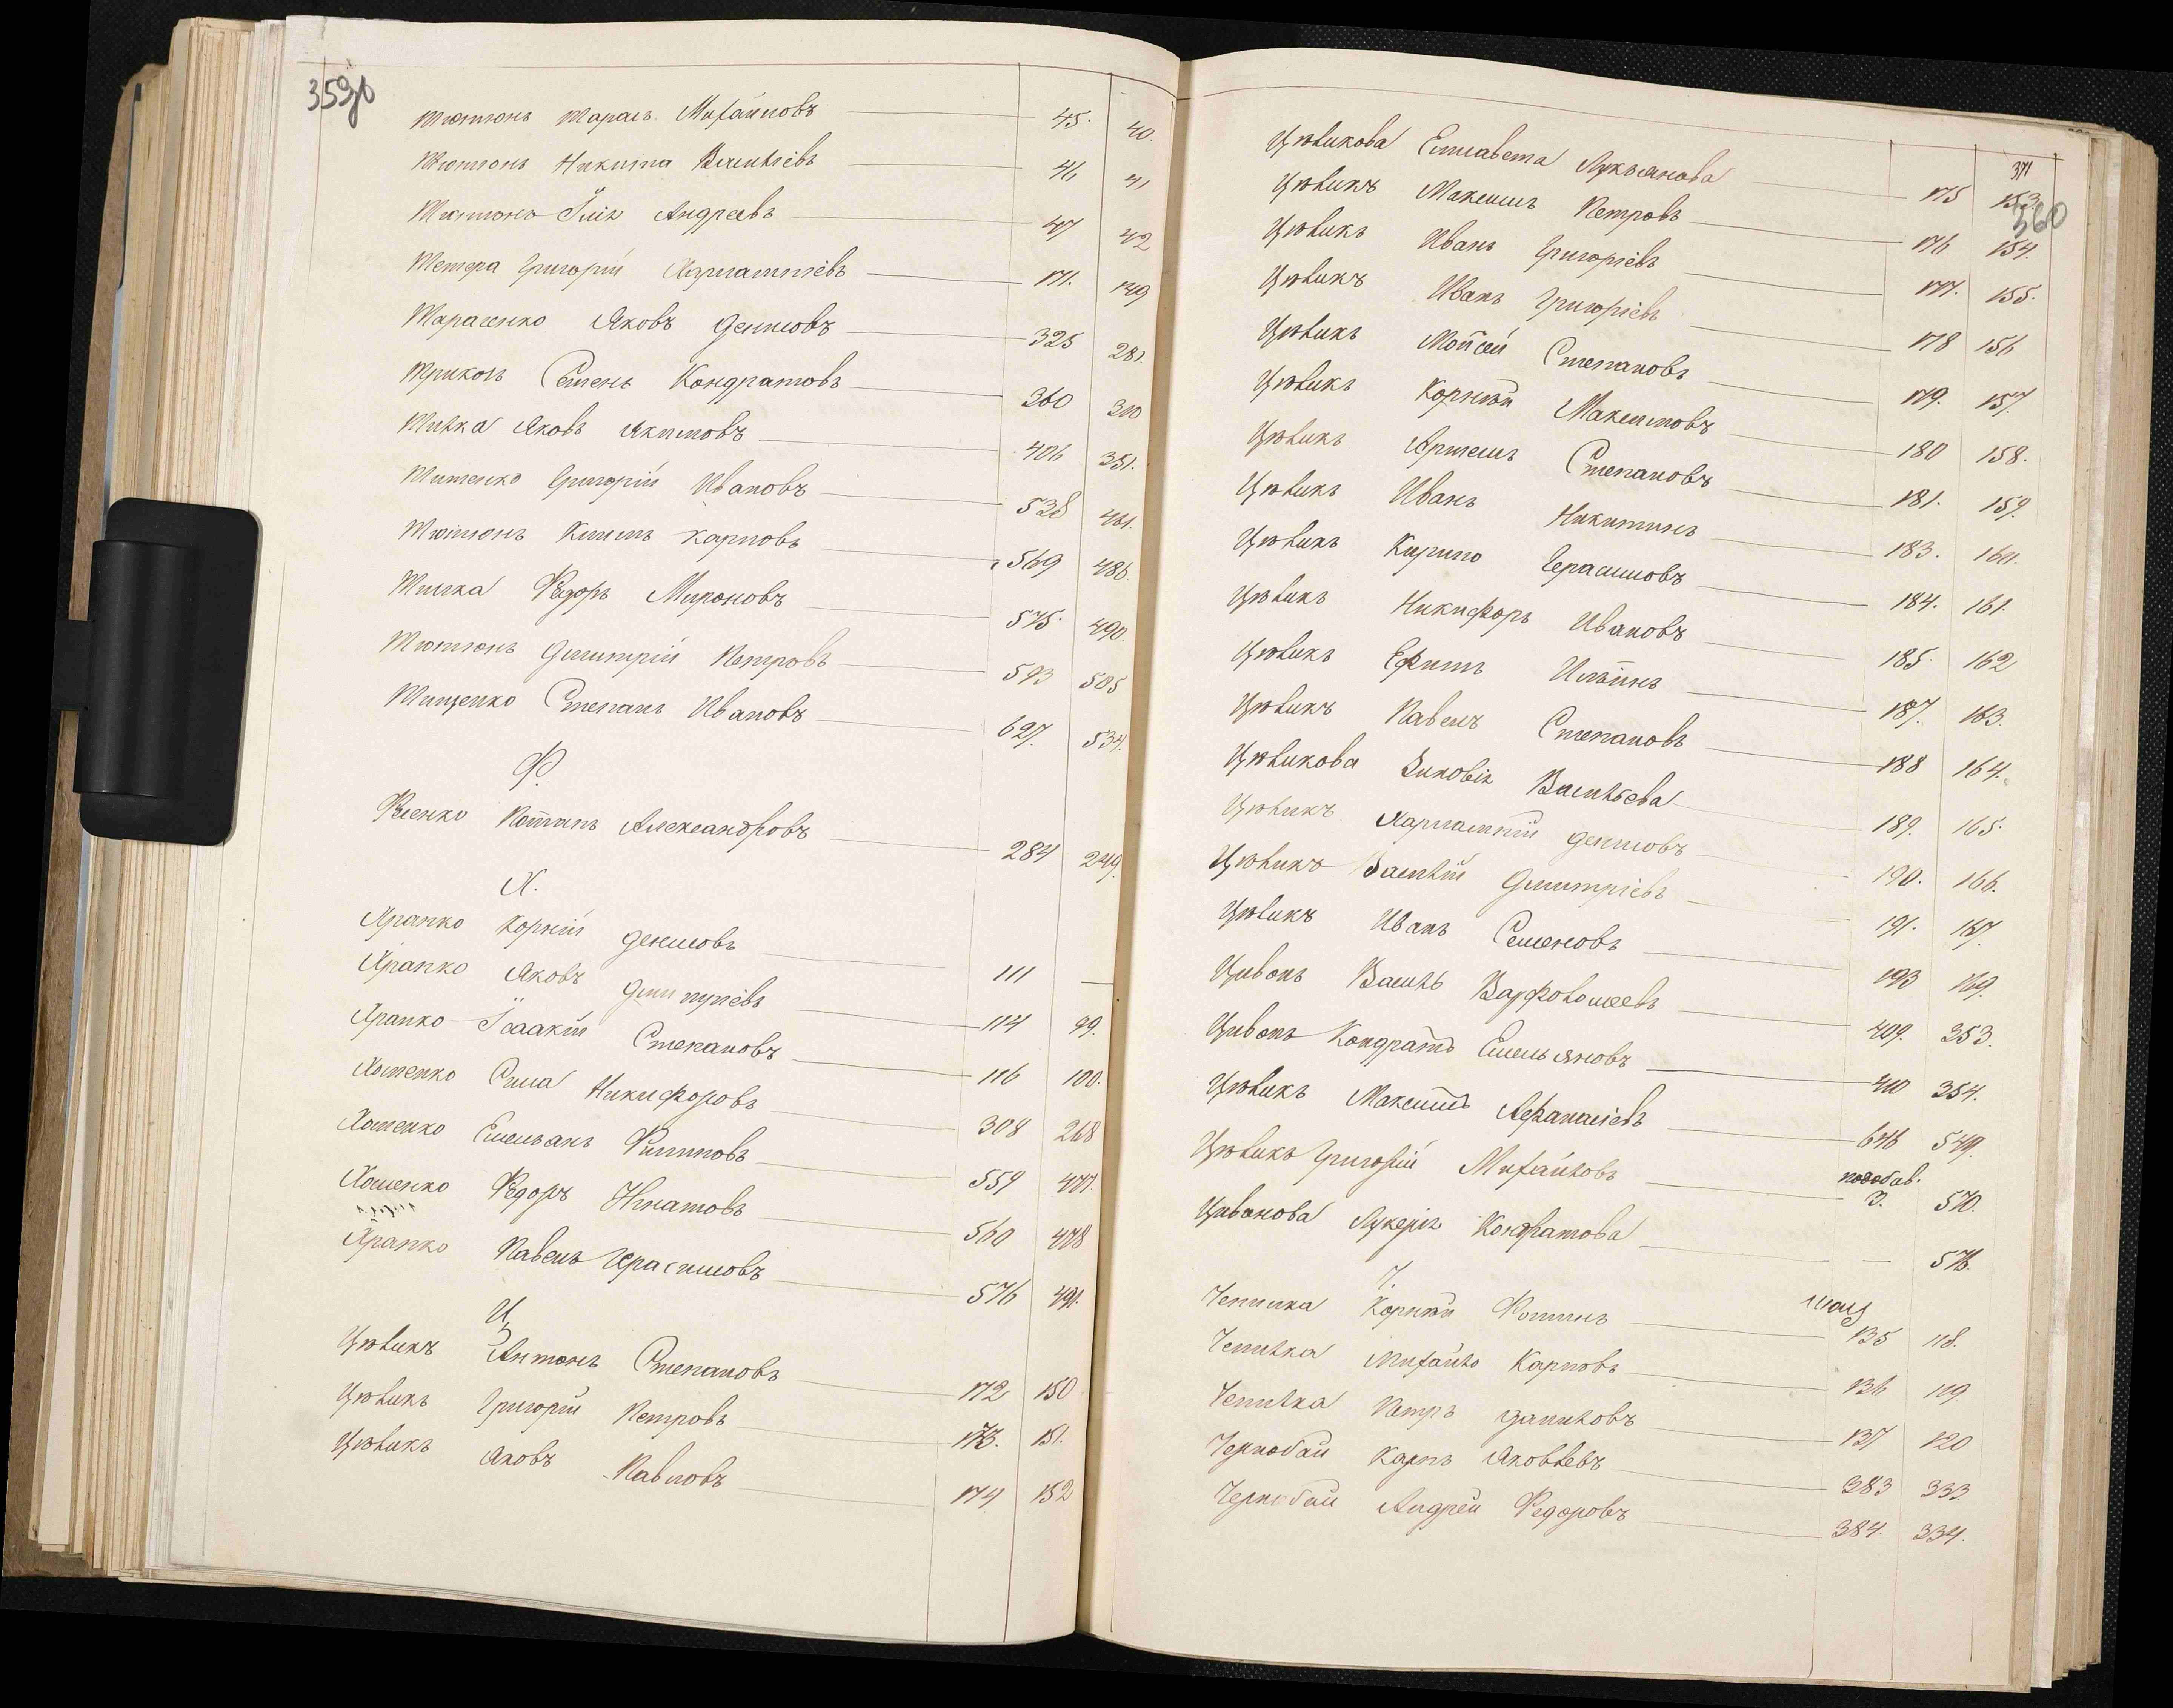 359об
Тютюнъ Тарасъ Михайловъ 45. 40.
Тютюнъ Никита Васильевъ 46 41
Тютюнъ Илія Андреевъ 47 42
Тетера Григорій Харлампіевъ 171. 149
Тарасенко Яковъ Денисовъ 325 281.
Трикозъ Семенъ Кондратовъ 360 310
Яковъ Якимовъ 406 351.
Григорій Ивановъ 538 461.
Тютюнъ Климъ Карповъ 569 486.
Федоръ Мироновъ 575. 490.
Тютюнъ Димитрій Петровъ 593 505
Тищенко Степанъ Ивановъ 627. 534.
Ф.
Фесенко Потапъ Александровъ 284 249.
Х.
Храпко Корній Денисовъ 111 —
Храпко Яковъ Дмитріевъ 114 99.
Храпко Ісаакій Степановъ 116 100.
Хоменко Сила Никифоровъ 308 268
Хоменко Емельянъ Филиповъ 559 477.
Хоменко Федоръ Игнатовъ 560 478
Храпко Павелъ Герасимовъ 576 491.
Ц
Цюликъ Антонъ Степановъ 172 150
Цюликъ Григорій Петровъ 173. 151.
Цюликъ Яковъ Павловъ 174 152
371
360
Цюликова Елисавета Лукьянова 175 153.
Цюликъ Максимъ Петровъ 176 154.
Цюликъ Иванъ Григоріевъ 177. 155.
Цюликъ Иванъ Григоріевъ 178 156
Цюликъ Мойсей Степановъ 179. 157.
Цюликъ Корній Максимовъ 180 158.
Цюликъ Артемъ Степановъ 181. 159.
Цюликъ Иванъ Никитинъ 183. 160.
Цюликъ Кирило Герасимовъ 184. 161.
Цюликъ Никифоръ Ивановъ 185. 162
Цюликъ Ефимъ Ильинъ 187. 163.
Цюликъ Павелъ Степановъ 188 164.
Цюликова Зиновія Васильева 189. 165.
Цюликъ Харлампій Денисовъ 190. 166.
Цюликъ Василій Дмитріевъ 191. 167.
Цюликъ Иванъ Семеновъ 193 169.
Василь Варфоломеевъ 409. 353.
Кондратъ Емельяновъ 410 354.
Цюликъ Максимъ Афанасіевъ 646 549.
Цюликъ Григорій Михайловъ 3. 570.
Лукерія Кондратова — 576.
Ч.
Корній Фоминъ 135 118.
Михайло Карповъ 136 119
Петръ Даниловъ 137 120
Чернобай Карпъ Яковлевъ 383 333
Чернобай Андрей Федоровъ 384. 334.